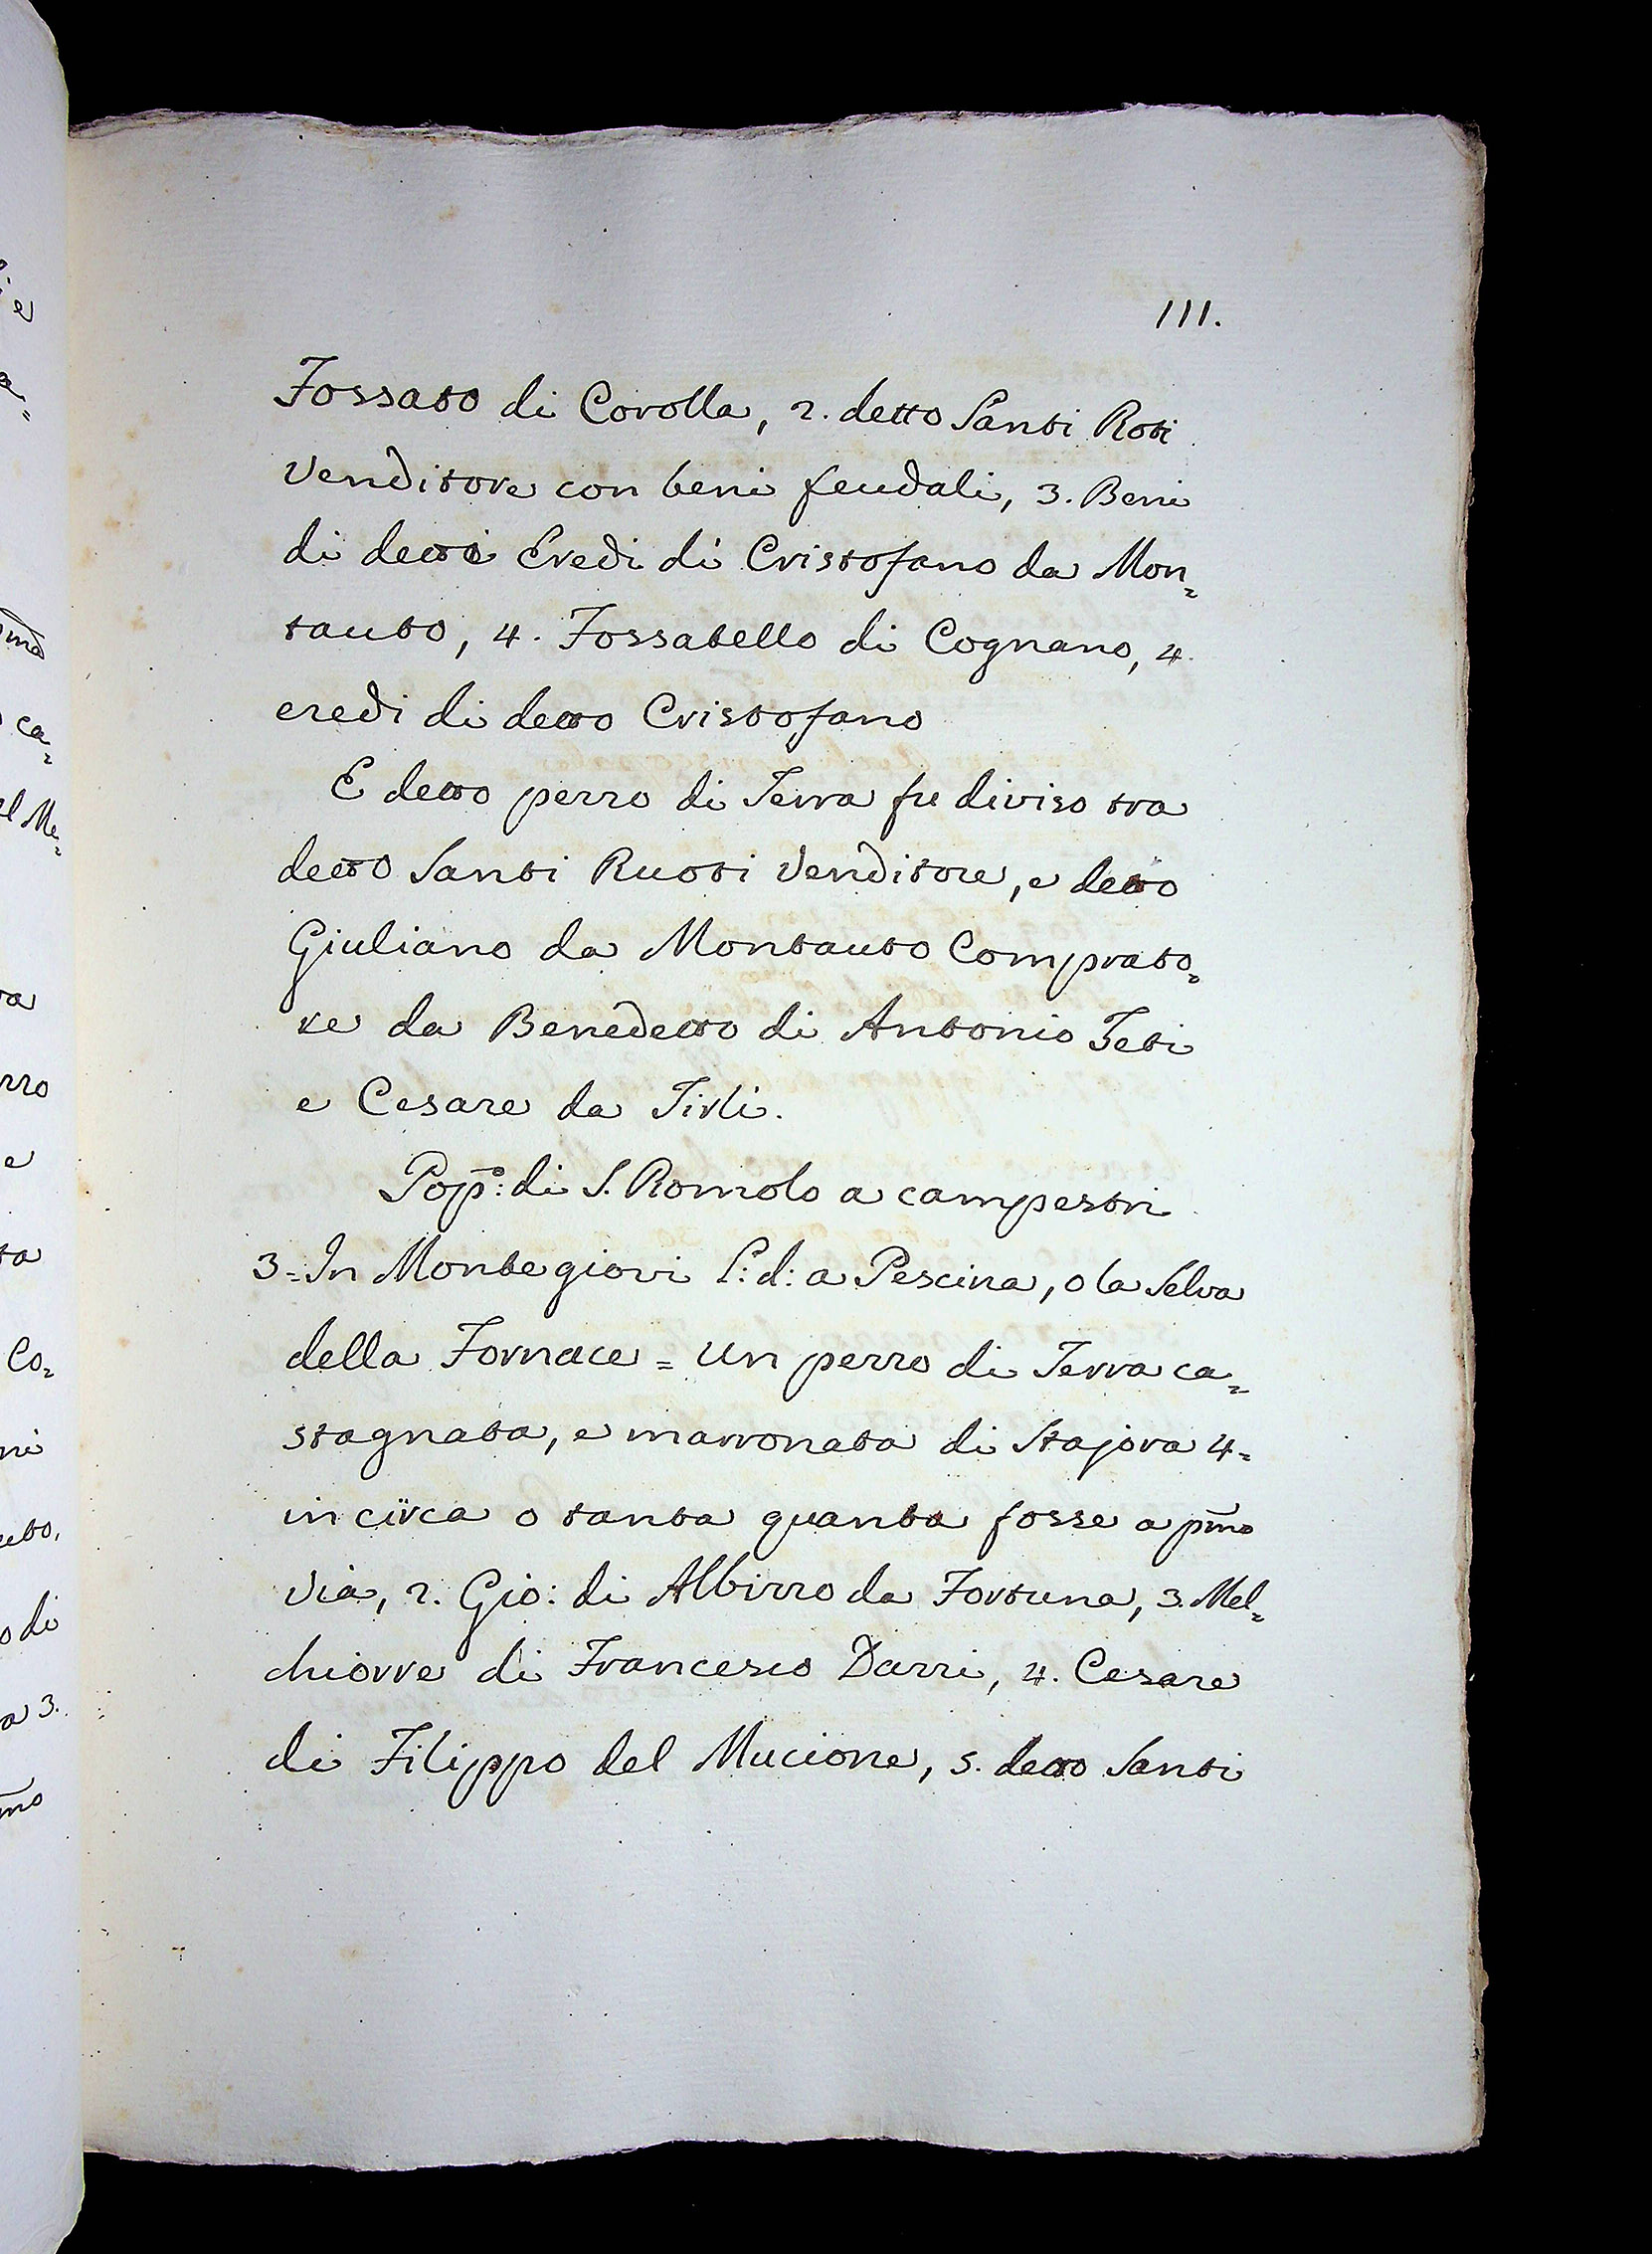 111.
Fossato di Corolla, 2. detto Santi Roti
Venditore con beni feudali, 3. Beni
di detti Eredi di Cristofano da Mon=
tauto, 4. Fossatello di Cognano, 4.
eredi di detto Cristofano
E detto pezzo di Terra fu diviso tra
detto Santi Ruoti Venditore, e detto
Giuliano da Montauto Comprato=
re da Benedetto di Antonio Teti
e Cesare da Tirli.
Popō: di S. Romolo a campestri
3=In Montegiovi l: d: a Pescina, o la Selva
della Fornace = Un pezzo di Terra ca=
stagnata, e marronata di Stajora 4=
in circa o tanta quanta fosse a pmo
via, 2. Gio: di Albizzo da Fortuna, 3. Mel=
chiorre di Francesco Dazzi, 4. Cesare
di Filippo del Mucione, 5. detto Santi